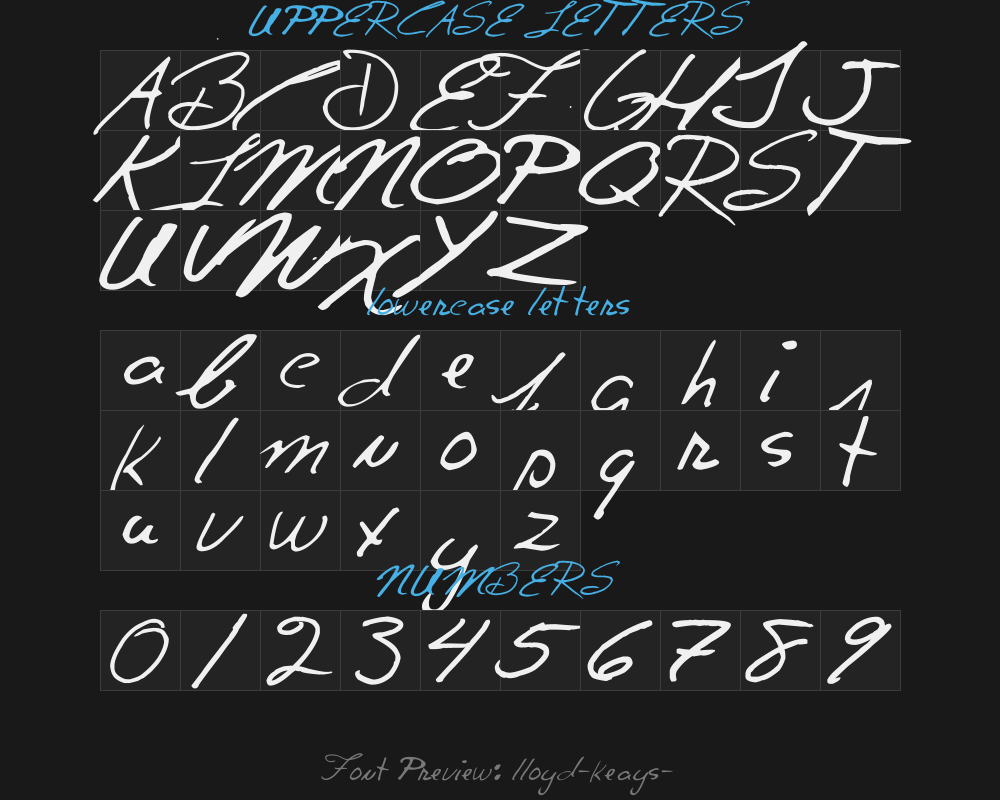 UPPERCASE LETTERS
A B C D E F G H I J
K L M N O P Q R S T
U V W X Y Z
lowercase letters
a b c d e f g h i j
k l m n o p q r s t
u v w x y z
NUMBERS
0 1 2 3 4 5 6 7 8 9
Font Preview: lloyd-keays-